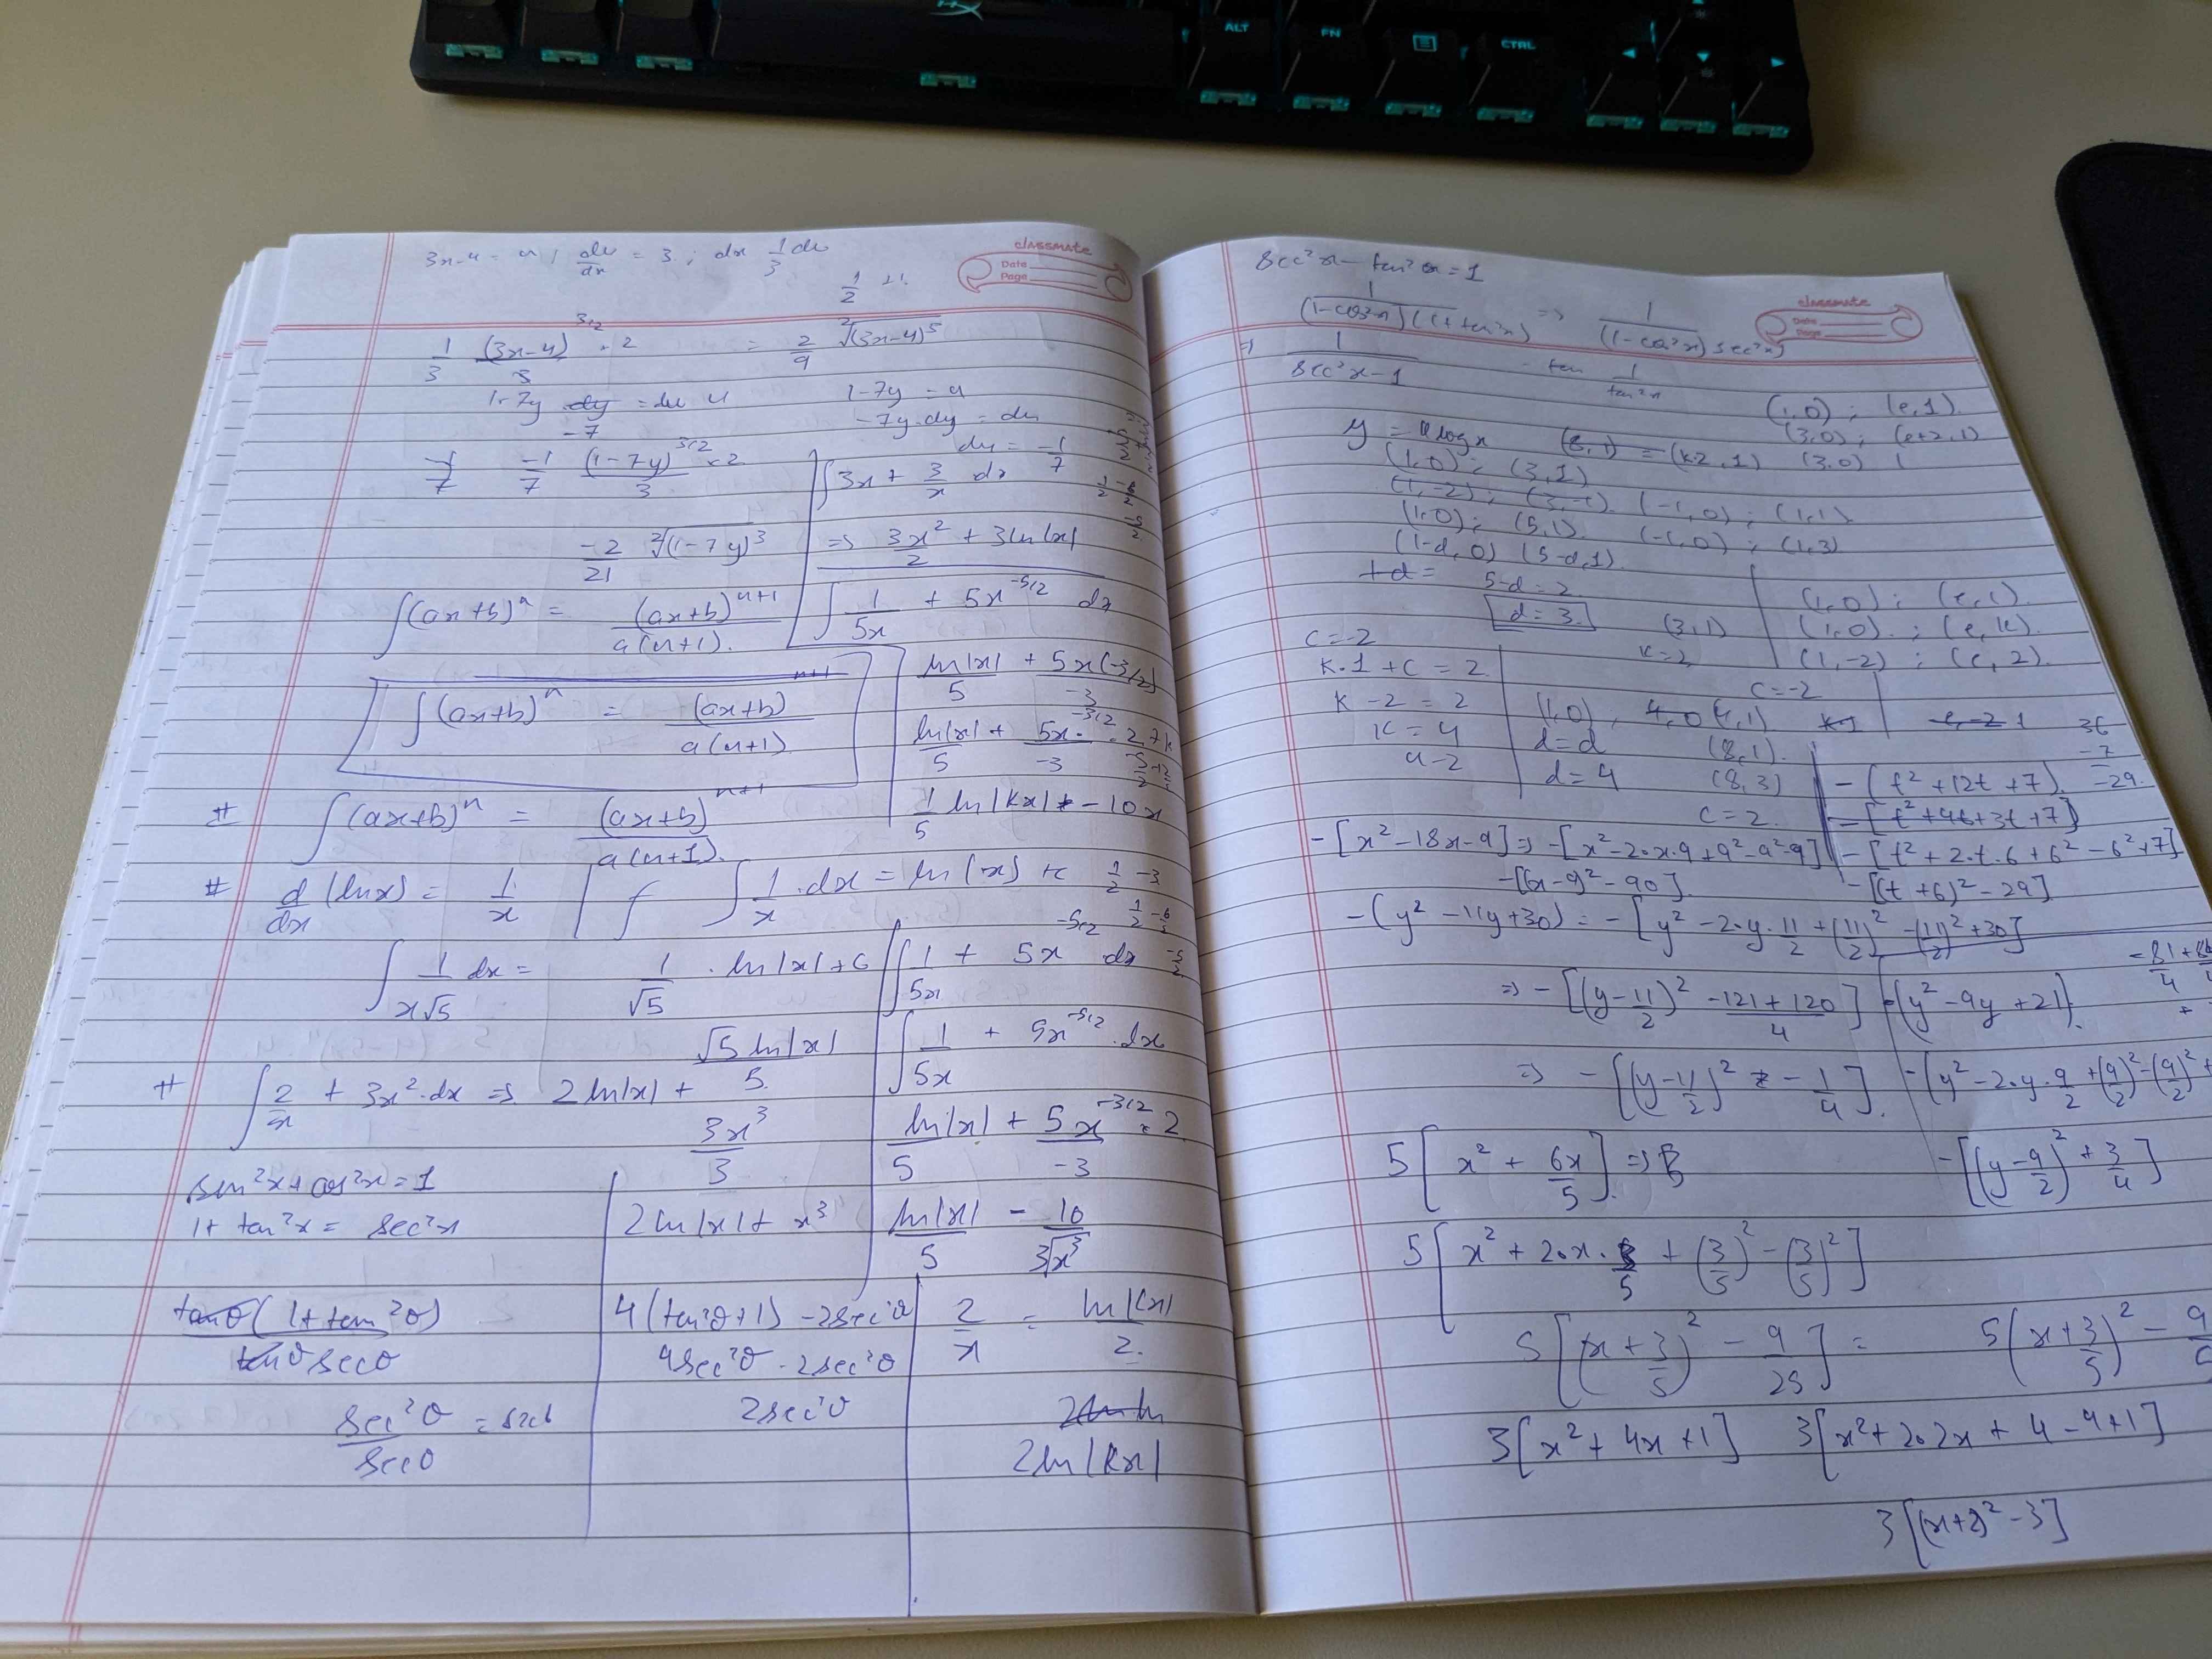 ALT FN CTRL
3x-4 = u / du/dx = 3 ; dx 1/3 du
classmate
Date
Page
1/2 +1
1/3 (3x-4)^3/2 / 3 × 2 = 2/9 ²√(3x-4)^5
1-7y dy = du u
-7
1-7y = u
-7y.dy = du
du = -1/7
-1/7 -1/7 (1-7y)^3/2 / 3 × 2
-2/21 ²√(1-7y)^3
∫3x + 3/x dx
=> 3x²/2 + 3ln|x|
∫(ax+b)^n = (ax+b)^n+1 / a(n+1).
∫1/5x + 5x^-5/2 dx
∫(ax+b)^n = (ax+b)^n+1 / a(n+1)
ln|x|/5 + 5x(-3/2) / -3
ln|x|/5 + 5x^-3/2 / -3 · 2
# ∫(ax+b)^n = (ax+b)^n+1 / a(n+1).
1/5 ln|kx| - 10x
# d/dx (lnx) = 1/x | f ∫1/x .dx = ln(x) + c
1/2 -3
∫1/x√5 dx = 1/√5 . ln|x| + c
√5 ln|x| / 5
∫1/5x + 5x^-5/2 dx
∫1/5x + 5x^-5/2 .dx
# ∫2/x + 3x².dx => 2ln|x| + 3x³/3
ln|x|/5 + 5x^-3/2 / -3 × 2
sin²x + cos²x = 1
1 + tan²x = sec²x
2ln|x| + x³
ln|x|/5 - 10/3√x³
tanθ(1+tan²θ) / tanθ secθ
sec²θ/secθ = secθ
4(tan²θ+1) - 2sec²θ
4sec²θ - 2sec²θ
2sec²θ
2/x = ln|kx| / 2.
2ln|kx|
sec²x - tan²x = 1
classmate
Date
Page
1/(1-cos²x)(1+tan²x) => 1/(1-cos²x) sec²x
=> 1/sec²x-1 - tan 1/tan²x
(1,0) ; (e,1).
(3,0) ; (e+2,1)
y = a logx (3,1) = (k-2,1) (3,0)
(1,0) ; (3,1)
(1,-2) ; (3,-1). (-1,0) ; (1,1)
(1,0) ; (5,1). (-1,0) ; (1,3)
(1-d,0) (5-d,1).
+d = 5-d=2
d=3.
(3,1)
k=2
(1,0) ; (e,1).
(1,0). ; (e,k).
(1,-2) ; (e,2).
c=-2
c=-2
k.1 + c = 2
k - 2 = 2
k = 4
4-2
(1,0), 4,0 (4,1)
d=d (8,1).
d=4 (8,3)
c=2.
36
-7
-29.
-(t²+12t+7).
-[t²+4t+3t+7]
-[t²+2.t.6+6²-6²+7]
-[(t+6)²-29]
-[x²-18x-9] => -[x²-2.x.9+9²-9²-9]
-[(x-9)²-90].
-(y²-11y+30) = -[y²-2.y.11/2+(11/2)²-(11/2)²+30]
=> -[(y-11/2)² -121+120/4]
-(y²-9y+21).
=> -[(y-11/2)² - 1/4].
-(y²-2.y.9/2+(9/2)²-(9/2)²+
-[(y-9/2)²+3/4]
5[x²+6x/5]. =>
5[x²+2.x.3/5+(3/5)²-(3/5)²]
5[(x+3/5)²-9/25] = 5(x+3/5)²-9/5
3[x²+4x+1] 3[x²+2.2x+4-4+1]
3[(x+2)²-3]